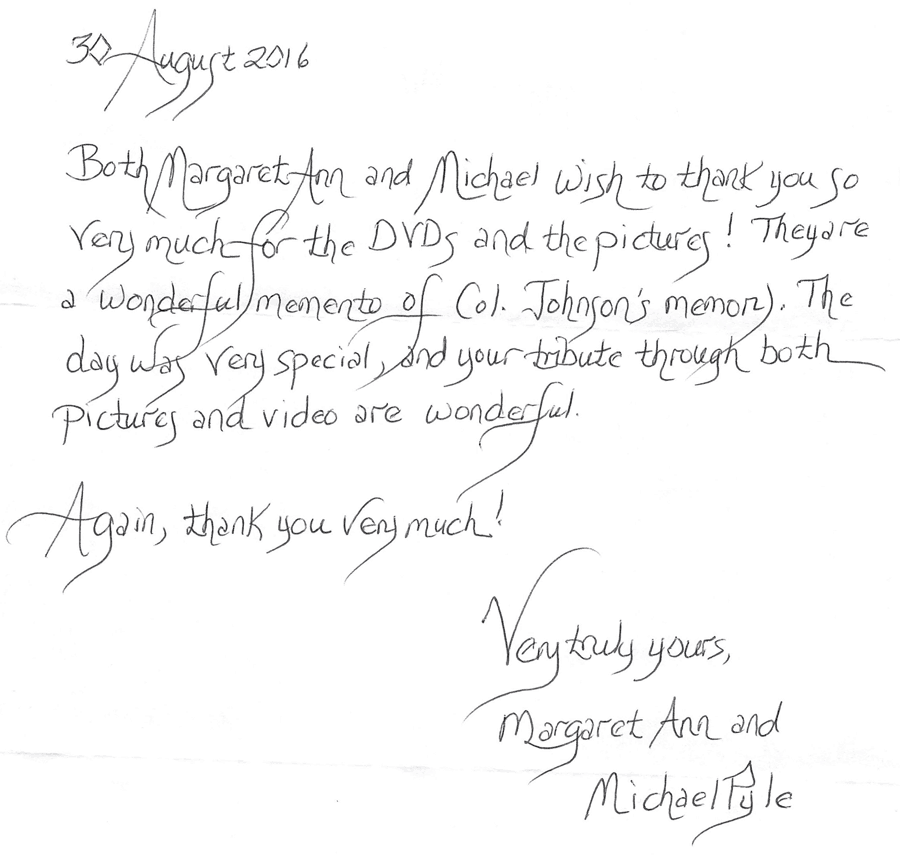 30 August 2016
Both Margaret Ann and Michael wish to thank you so
very much for the DVDs and the pictures! They are
a wonderful memento of Col. Johnson's memory. The
day was very special, and your tribute through both
pictures and video are wonderful.
Again, thank you very much!
Very truly yours,
Margaret Ann and
Michael Pyle